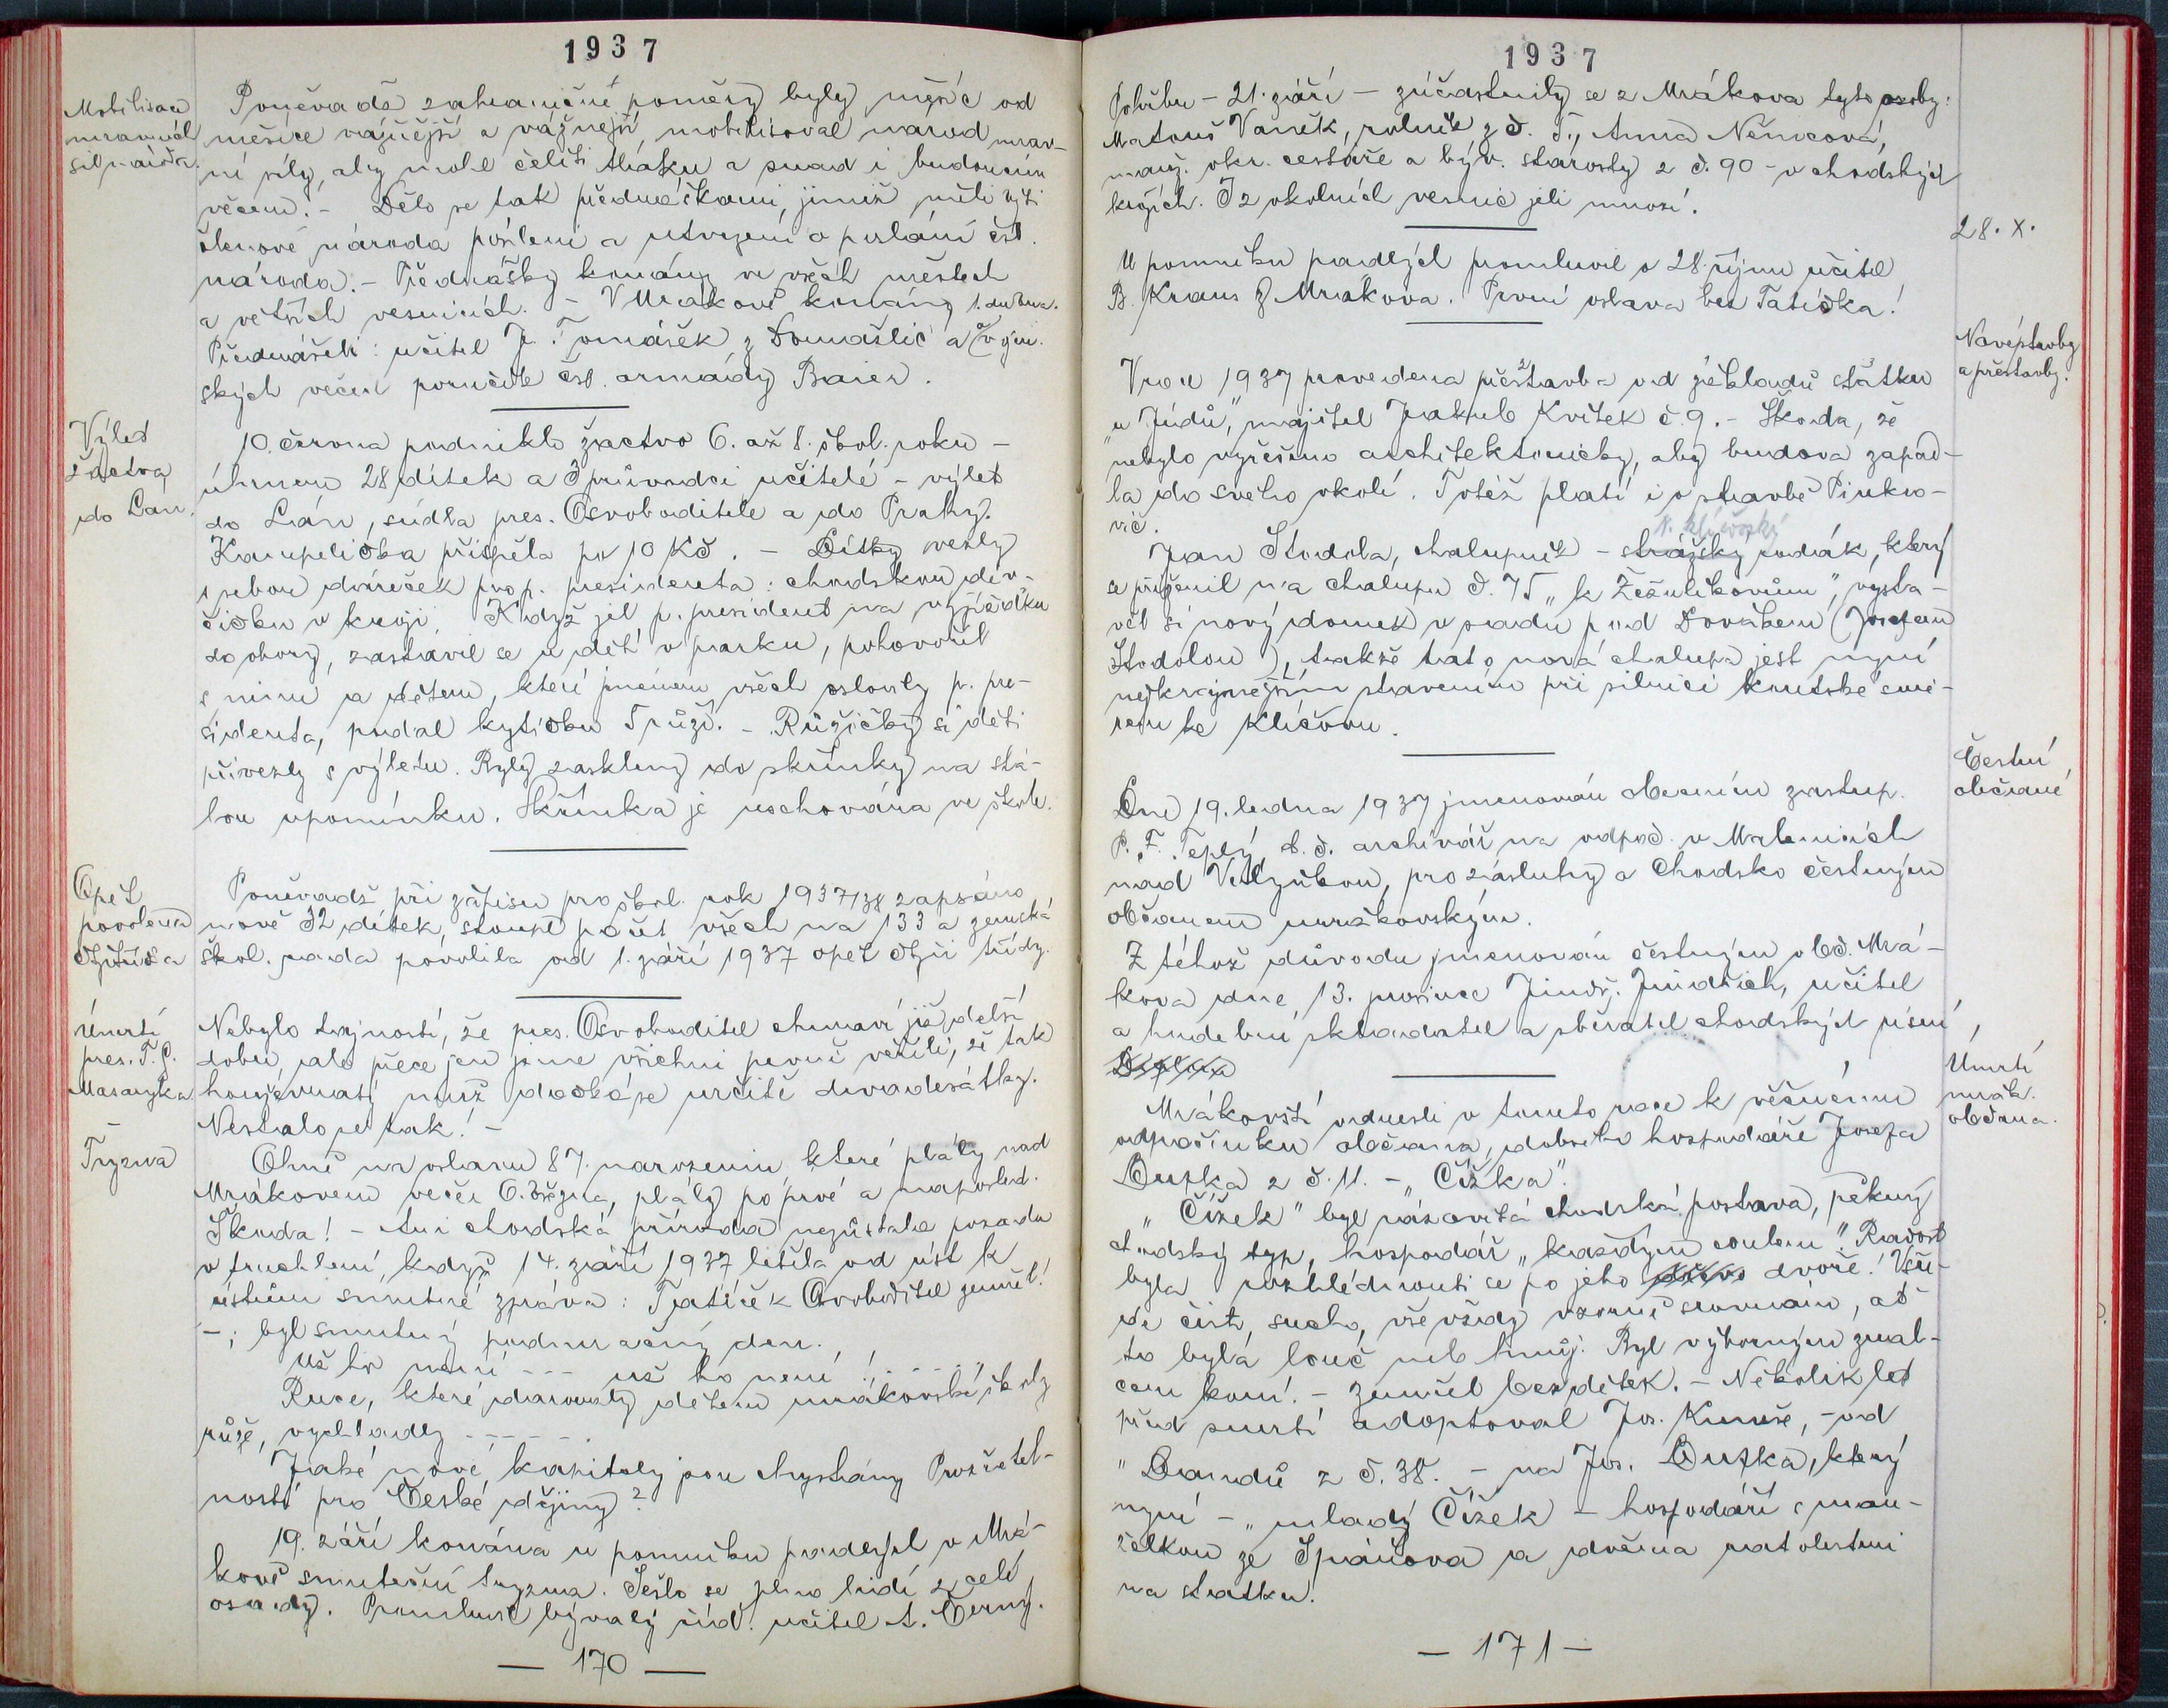 1937
Mobilisace
mravních
sil národa.
Poněvadž zahraničné poměry byly měsíc od
měsíce vážnější a vážnejší, mobilisoval národ mrav-
ní síly, aby mohl čeliti tlaku a snad i budoucím
věcem. - Dělo se tak přednáškami, jimiž měli býti
členové národa posíleni a utvrzeni o poslání čsl.
národa. - Přednášky konány ve všech městech
a větších vesnicích. - V Mrákově konány 1. dubna.
Přednášeli: učitel J. Tomášek z Domažlic a o vojen-
ských věcech poručík čsl. armády Baier.
Výlet
žactva
do Lán.
10. června podniklo žactvo 6. až 8. škol. roku -
úhrnem 28 dítek a 3 průvodci učitelé - výlet
do Lán, sídla pres. Osvoboditele a do Prahy.
Kampelička přispěla po 10 Kč. - Dítky vezly
s sebou dáreček pro p. presidenta: chodskou děv-
čičku v kroji. Když jel p. president na vyjížďku
do obory, zastavil se u dětí v parku, pohovořil
s nimi a dětem, které jménem všech oslovily p. pre-
sidenta, podal kytičku 5 růží. - Růžičky si děti
přivezly s výletu. Byly zaskleny do skřínky na stá-
lou upomínku. Skřínka je uschována ve škole.
Opět
povolena
čtvrtá
třída
Poněvadž při zápisu pro škol. rok 1937/38 zapsáno
nově 32 dítek, stoupl počet všech na 133 a zemská
škol. rada povolila od 1. září 1937 opět čtyři třídy.
Úmrtí
pres. T. G.
Masaryka
Nebylo tajností, že pres. Osvoboditel churaví již delší
dobu, ale přece jen jsme všichni pevně věřili, že tak
houževnatý muž dočká se určitě devadesátky.
Nestalo se tak! -
Tryzna
Ohně na oslavu 87. narozenin, které plály nad
Mrákovem večer 6. března, plály poprvé a naposled.
Škoda! - Ani chodská příroda nezůstala pozadu
v truchlení, když 14. září 1937 letěla od úst k
ústům smutná zpráva: Tatíček Osvoboditel zemřel!
-; byl smutný podmračný den.
Už ho není --- už ho není!
Ruce, které darovaly dětem mrákovské školy
růže, vychladly - - - - -
Jaké nové kapitoly jsou chystány Prozřetel-
ností pro České dějiny?
19. září konána u pomníku padlých v Mrá-
kově smuteční tryzna. Sešlo se plno lidí z celé
osady. Promluvil bývalý říd. učitel A. Černý.
- 170 -
1937
Pohřbu - 21. září - zúčastnily se z Mrákova tyto osoby:
Matouš Vaněk, rolník z č. 5., Anna Němcová,
manž. okr. cestáře a býv. starosty z č. 90 - v chodských
krojích. I z okolních vesnic jeli mnozí.
28. X.
U pomníku padlých promluvil o 28. říjnu učitel
B. Kraus z Mrákova. První oslava bez Tatíčka!
Novéstavby
a přestavby.
V roce 1937 provedena přestavba od základů statku
"u Judů", majitel Jakub Kvítek č. 9. - Škoda, že
nebylo vyřešeno architektonicky, aby budova zapad-
la do svého okolí. Totéž platí i o stavbě Pinko-
vič.
Jan Stodola, chalupník - strážský rodák, který
N. klíčovský
se přiženil na chalupu č. 75 "k Žežulkovům", vysta-
věl si nový domek v sadu pod Dovákem (Josefem
Stodolou), takže tato nová chalupa jest nyní
nejkrajnejším stavením při silnici koutské smě-
rem ke Klíčovu.
Čestní
občané
Dne 19. ledna 1937 jmenován obecním zastup.
P. F. Teplý, t. č. archivář na odpoč. v Malenicích
nad Volyňkou, pro zásluhy o Chodsko čestným
občanem mrákovským.
Z téhož důvodu jmenován čestným obč. Mrá-
kova dne 13. prosince Jindř. Jindřich, učitel
a hudební skladatel a sběratel chodských písní,
Úmrtí
mrák.
občana.
Mrákovští odnesli v tomto roce k věčnému
odpočinku občana, dobrého hospodáře Josefa
Duffka z č. 11. - "Čížka".
"Čížek" byl rázovitá chodská postava, pěkný
chodský typ, hospodář "každým coulem". Radost
byla rozhlédnouti se po jeho dvoře! Všu-
de čisto, sucho, vše vždy vzorně srovnáno, ať
to byla louč neb hnůj. Byl výborným znal-
cem koní. - Zemřel bez dětek. - Několik let
před smrtí adoptoval Jos. Kuneše, - od
"Dandů z č. 38. - na Jos. Duffka, který
nyní - "mladý Čížek - hospodaří s man-
želkou ze Spáňova a dvěma ratolestmi
na statku.
- 171 -